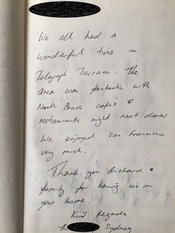 We all had a
wonderful time in
Telegraph Terrace. The
area was fantastic with
North Beach cafes &
restaurants right next door
We enjoyed San Francisco
very much.
Thank you Richard &
family for having us in
your home.
Kind Regards
The Sydney